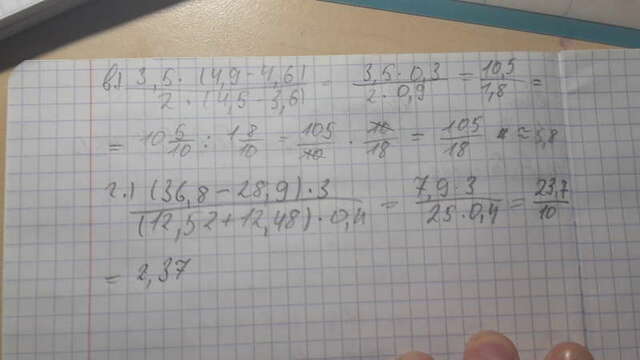 в.) 3,5 · (4,9 - 4,6) / 2 · (4,5 - 3,6) = 3,5 · 0,3 / 2 · 0,9 = 10,5 / 1,8 =
= 10 5/10 : 1 8/10 = 105/10 · 10/18 = 105/18 ≈ 5,8
г.) (36,8 - 28,9) · 3 / (12,52 + 12,48) · 0,4 = 7,9 · 3 / 25 · 0,4 = 23,7 / 10
= 2,37